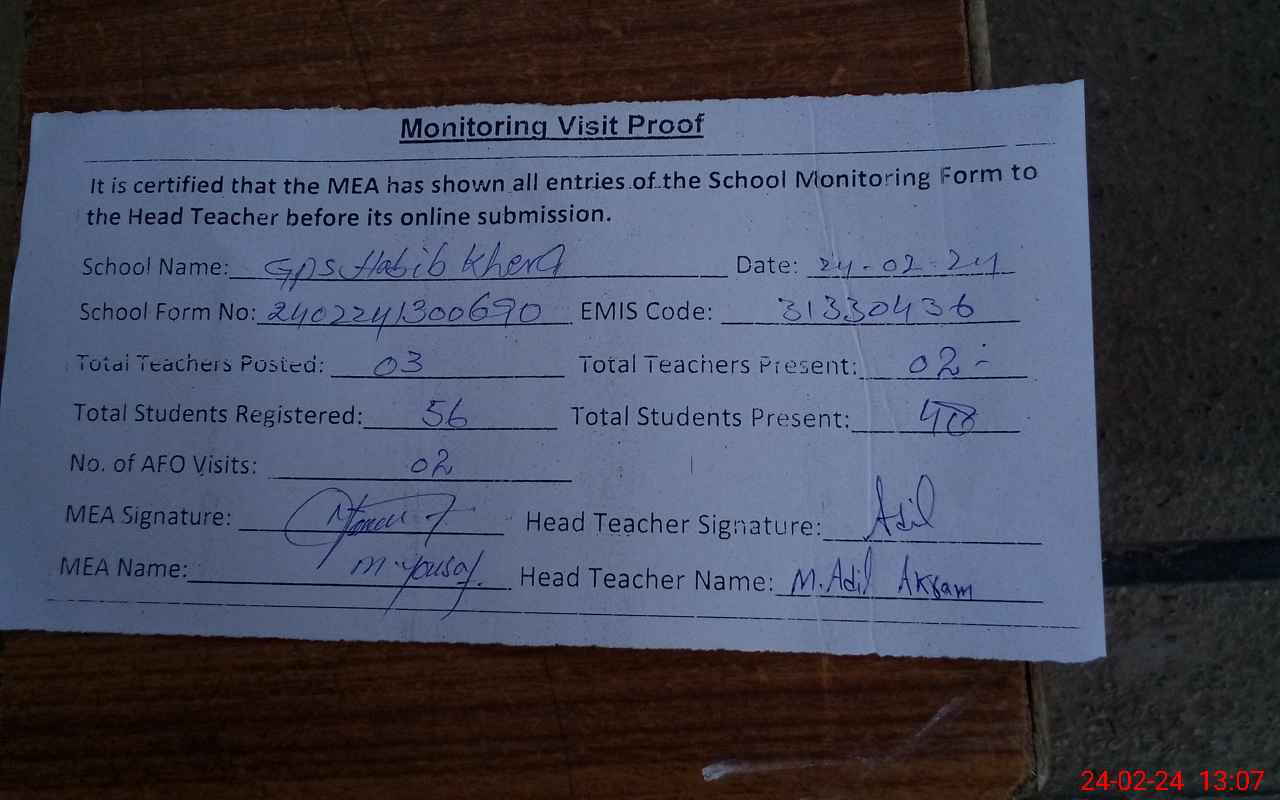 Monitoring Visit Proof
It is certified that the MEA has shown all entries of the School Monitoring Form to
the Head Teacher before its online submission.
School Name: GPS Habib Khera Date: 24-02-24
School Form No: 2402241300690 EMIS Code: 31330436
Total Teachers Posted: 03 Total Teachers Present: 02
Total Students Registered: 56 Total Students Present:
No. of AFO Visits: 02
MEA Signature: Head Teacher Signature: Adil
MEA Name: M. Yousaf. Head Teacher Name: M. Adil Akram
24-02-24 13:07